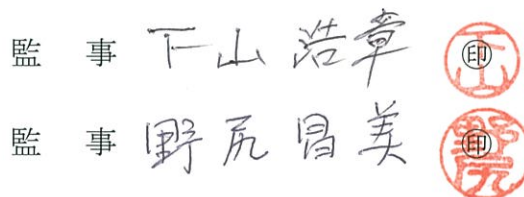 監事 下山 浩章 ㊞
監事 野尻 昌美 ㊞